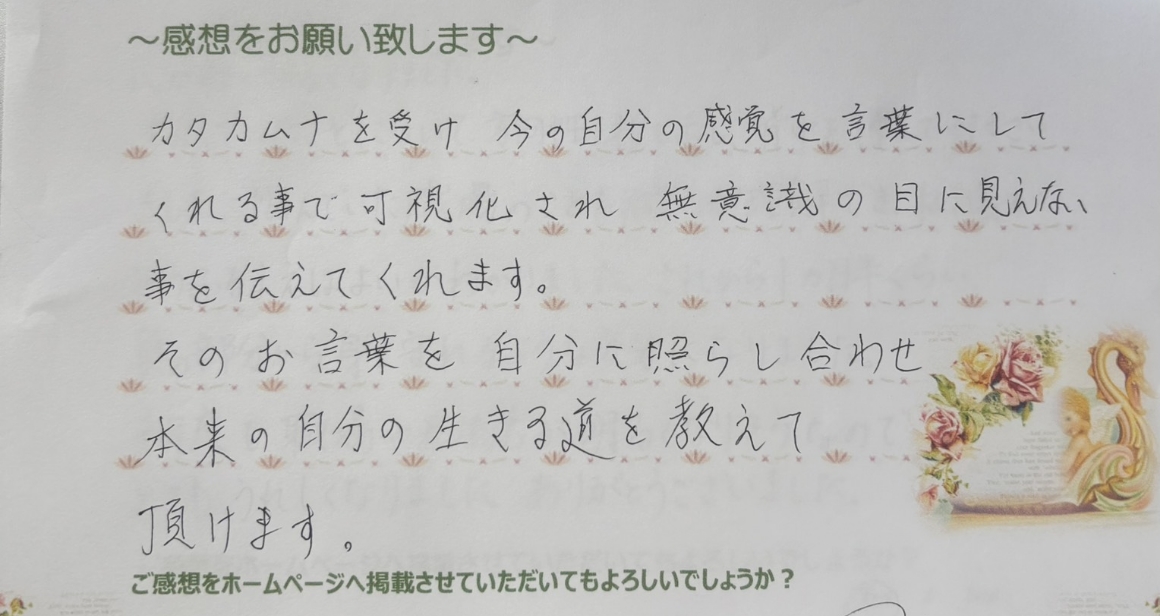 ～感想をお願い致します～
カタカムナを受け 今の自分の感覚を言葉にして
くれる事で可視化され 無意識の目に見えない
事を伝えてくれます。
そのお言葉を自分に照らし合わせ
本来の自分の生きる道を教えて
頂けます。
ご感想をホームページへ掲載させていただいてもよろしいでしょうか？